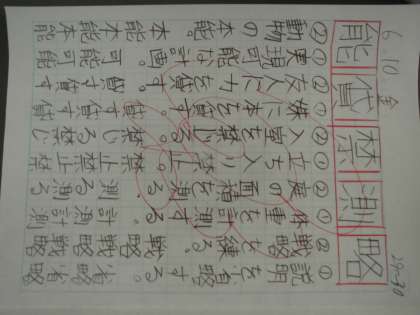 29-30
略
①説明を省略する。省略省略
②戦略を練る。戦略戦略戦略
測
①体重を計測する。計測計測
②庭の面積を測る。測る測る
禁
①立ち入り禁止。禁止禁止
②入室を禁じる。禁じる禁じ
貸
①妹に本を貸す。貸す貸す貸
②友人に力を貸す貸す貸す
能
①実現可能な計画。可能可能
②動物の本能。本能本能本能
6.10 金